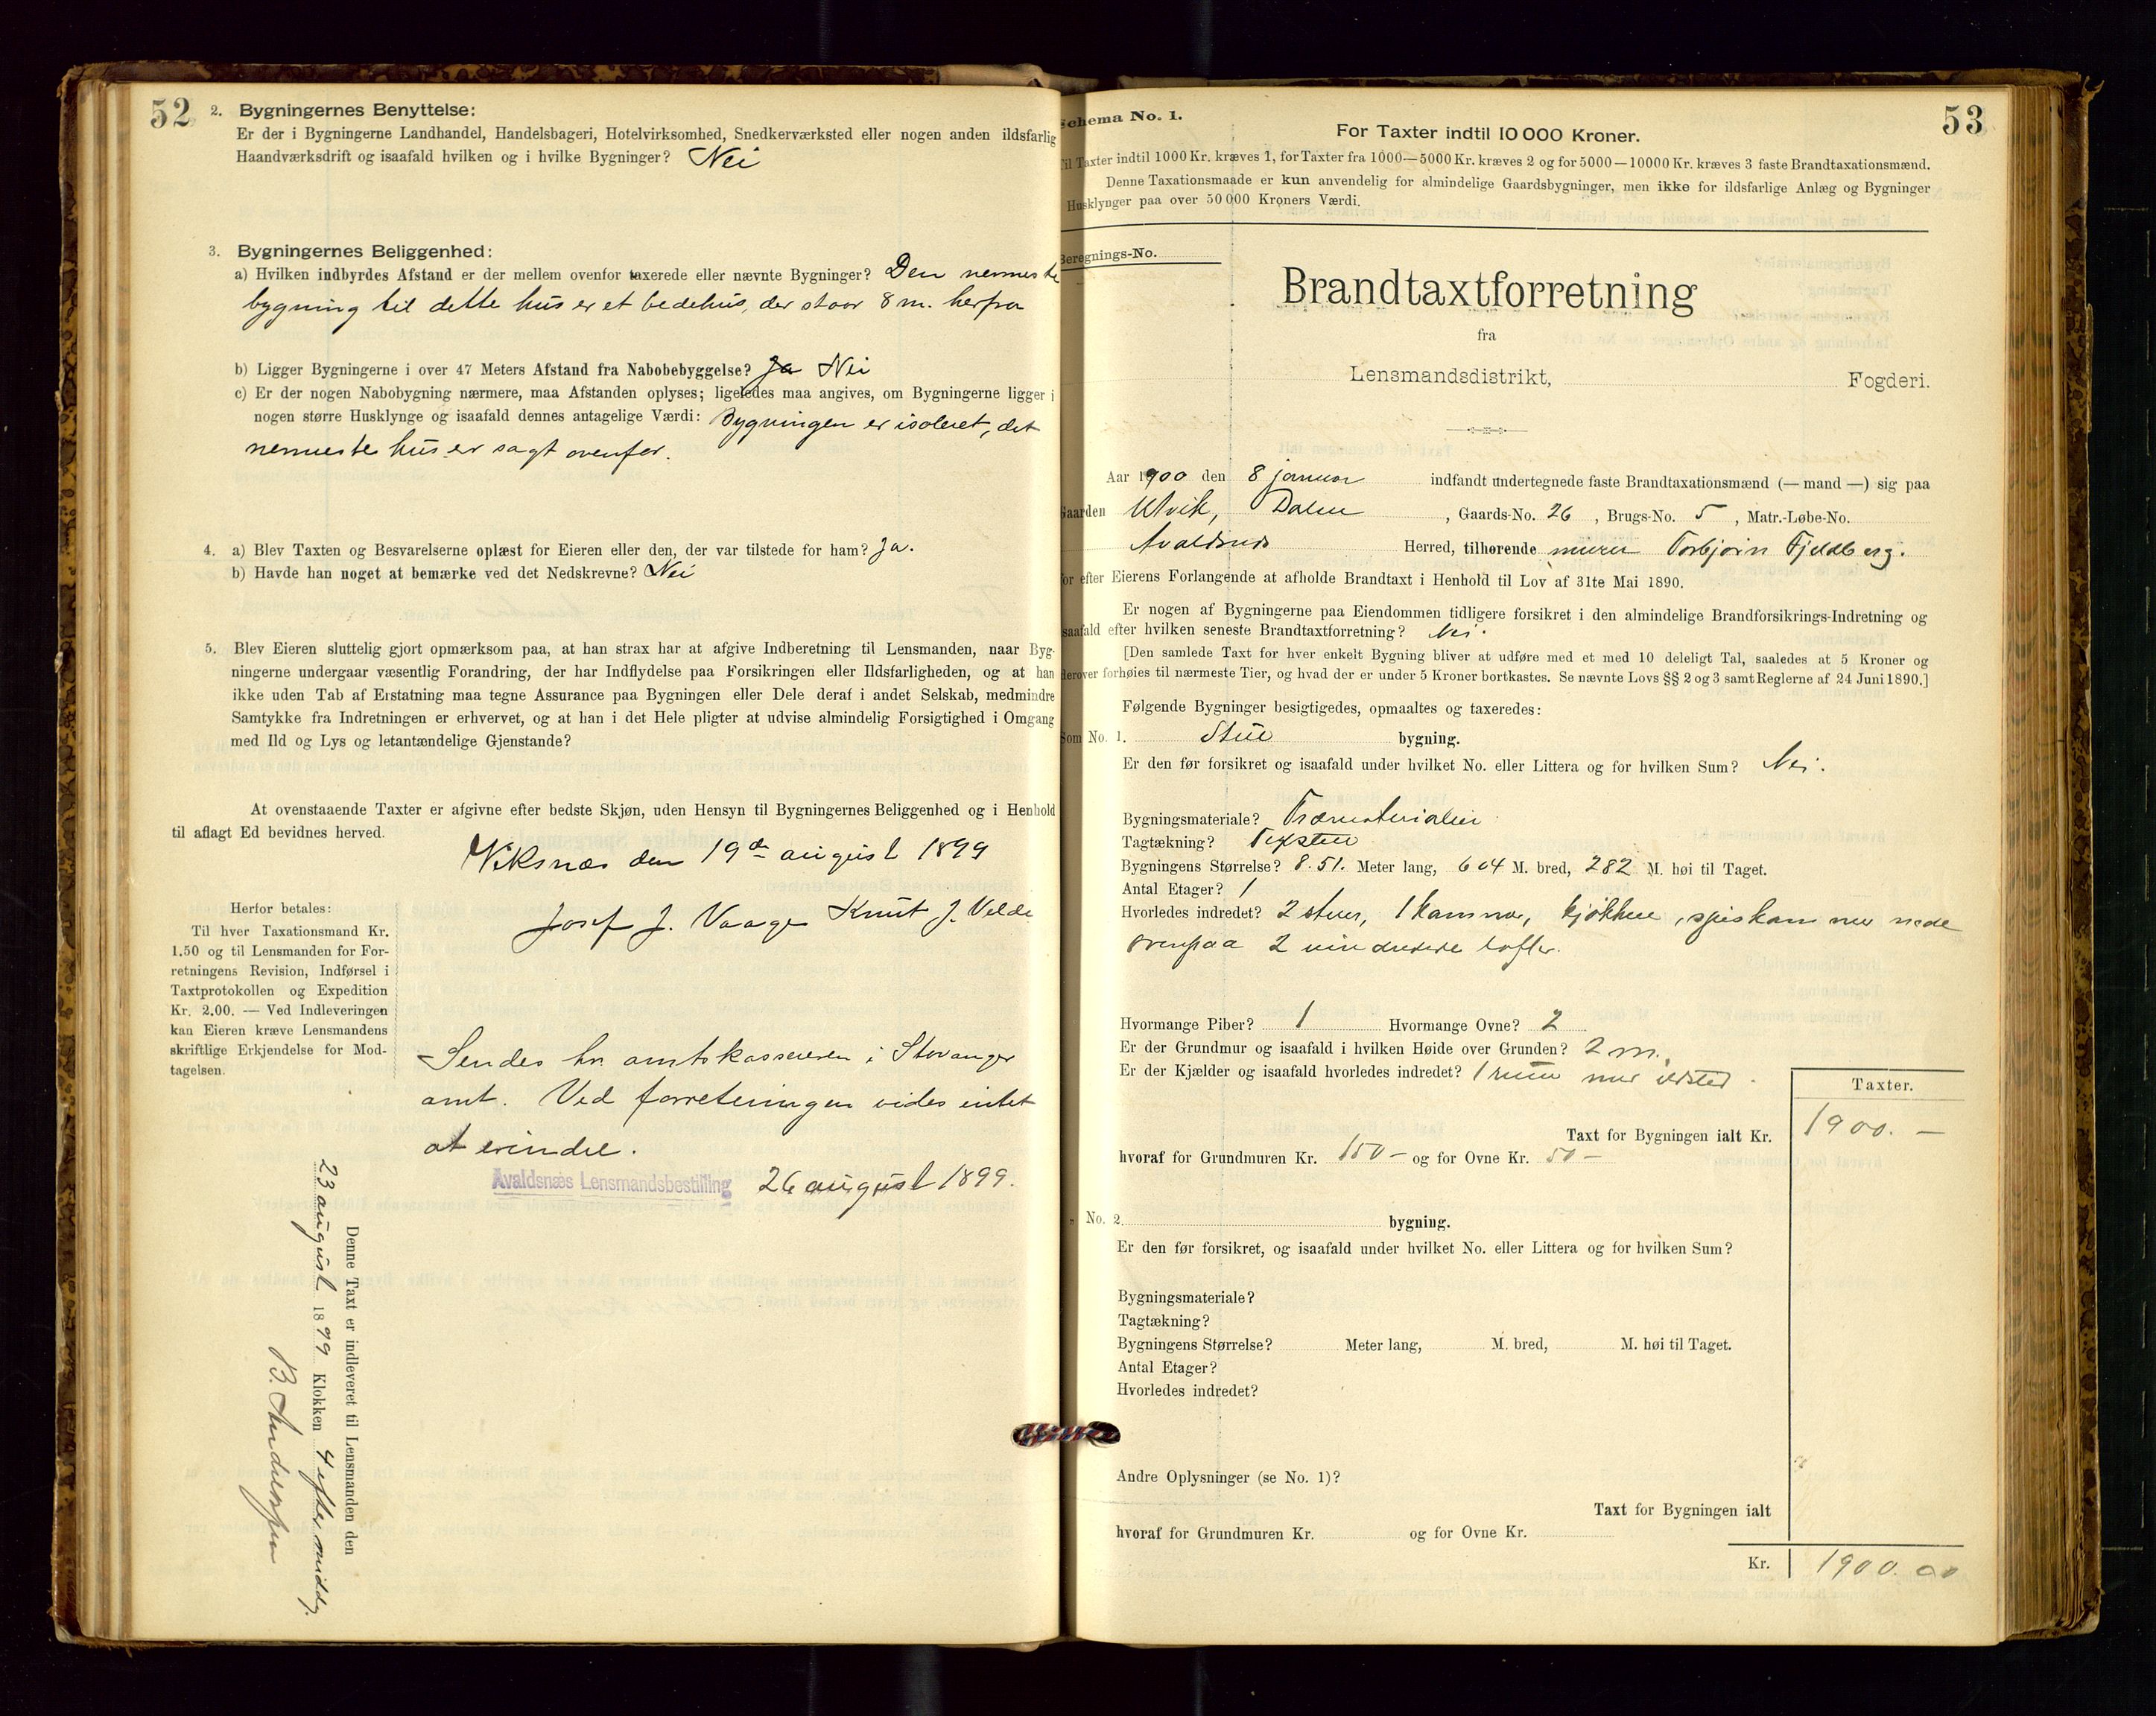 52
2. Bygningernes Benyttelse:
Er der i Bygningerne Landhandel, Handelsbageri, Hotelvirksomhed, Snedkerværksted eller nogen anden ildsfarlig
Haandværksdrift og isaafald hvilken og i hvilke Bygninger? Nei
3. Bygningernes Beliggenhed:
a) Hvilken indbyrdes Afstand er der mellem ovenfor taxerede eller nævnte Bygninger? Den nermeste
bygning til dette hus er et bedehus, der staar 8 m. herfra
b) Ligger Bygningerne i over 47 Meters Afstand fra Nabobebyggelse? Ja Nei
c) Er der nogen Nabobygning nærmere, maa Afstanden oplyses; ligeledes maa angives, om Bygningerne ligger i
nogen større Husklynge og isaafald dennes antagelige Værdi: Bygningen er isoleret, det
nermeste hus er sagt ovenfor.
4. a) Blev Taxten og Besvarelserne oplæst for Eieren eller den, der var tilstede for ham? Ja.
b) Havde han noget at bemærke ved det Nedskrevne? Nei
5. Blev Eieren sluttelig gjort opmærksom paa, at han strax har at afgive Indberetning til Lensmanden, naar Byg-
ningerne undergaar væsentlig Forandring, der har Indflydelse paa Forsikringen eller Ildsfarligheden, og at han
ikke uden Tab af Erstatning maa tegne Assurance paa Bygningen eller Dele deraf i andet Selskab, medmindre
Samtykke fra Indretningen er erhvervet, og at han i det Hele pligter at udvise almindelig Forsigtighed i Omgang
med Ild og Lys og letantændelige Gjenstande?
At ovenstaaende Taxter er afgivne efter bedste Skjøn, uden Hensyn til Bygningernes Beliggenhed og i Henhold
til aflagt Ed bevidnes herved.
Viksnæs den 19de august 1899
Josef J. Vaage Knut J. Velde
Herfor betales:
Til hver Taxationsmand Kr.
1.50 og til Lensmanden for For-
retningens Revision, Indførsel i
Taxtprotokollen og Expedition
Kr. 2.00. — Ved Indleveringen
kan Eieren kræve Lensmandens
skriftlige Erkjendelse for Mod-
tagelsen.
Sendes hr. amtskassereren i Stavanger
amt. Ved forretningen vides intet
at erindre.
Avaldsnæs Lensmandsbestilling 26 august 1899.
Denne Taxt er indleveret til Lensmanden den
23 august 1899 Klokken 4 eftermiddg.
B. Andreassen
53
Schema No. 1.
For Taxter indtil 10 000 Kroner.
Til Taxter indtil 1000 Kr. kræves 1, for Taxter fra 1000—5000 Kr. kræves 2 og for 5000—10000 Kr. kræves 3 faste Brandtaxationsmænd.
Denne Taxationsmaade er kun anvendelig for almindelige Gaardsbygninger, men ikke for ildsfarlige Anlæg og Bygninger
Husklynger paa over 50 000 Kroners Værdi.
Beregnings-No.
Brandtaxtforretning
fra
Lensmandsdistrikt, Fogderi.
Aar 1900 den 8 januar indfandt undertegnede faste Brandtaxationsmænd (— mand —) sig paa
Gaarden Utvik, Dalen, Gaards-No. 26, Brugs-No. 5, Matr.-Løbe-No.
Avaldsnds Herred, tilhørende murer Torbjørn Fjeldberg.
for efter Eierens Forlangende at afholde Brandtaxt i Henhold til Lov af 31te Mai 1890.
Er nogen af Bygningerne paa Eiendommen tidligere forsikret i den almindelige Brandforsikrings-Indretning og
isaafald efter hvilken seneste Brandtaxtforretning? Nei.
[Den samlede Taxt for hver enkelt Bygning bliver at udføre med et med 10 deleligt Tal, saaledes at 5 Kroner og
derover forhøies til nærmeste Tier, og hvad der er under 5 Kroner bortkastes. Se nævnte Lovs §§ 2 og 3 samt Reglerne af 24 Juni 1890.]
Følgende Bygninger besigtigedes, opmaaltes og taxeredes:
Som No. 1. Stue bygning.
Er den før forsikret og isaafald under hvilket No. eller Littera og for hvilken Sum? Nei.
Bygningsmateriale? Træmaterialier
Tagtækning? Texsten
Bygningens Størrelse? 8.51. Meter lang, 604 M. bred, 282 M. høi til Taget.
Antal Etager? 1
Hvorledes indredet? 2 stuer, 1 kammer, kjøkken, spiskammer nede
ovenpaa 2 uindredede lofter.
Hvormange Piber? 1 Hvormange Ovne? 2
Er der Grundmur og isaafald i hvilken Høide over Grunden? 2 m.
Er der Kjælder og isaafald hvorledes indredet? 1 rum med ildsted.
Taxter.
Taxt for Bygningen ialt Kr. 1900. —
hvoraf for Grundmuren Kr. 150 — og for Ovne Kr. 50 —
" No. 2. bygning.
Er den før forsikret, og isaafald under hvilket No. eller Littera og for hvilken Sum?
Bygningsmateriale?
Tagtækning?
Bygningens Størrelse? Meter lang, M. bred, M. høi til Taget.
Antal Etager?
Hvorledes indredet?
Andre Oplysninger (se No. 1)?
Taxt for Bygningen ialt
hvoraf for Grundmuren Kr. og for Ovne Kr.
Kr. 1900.00